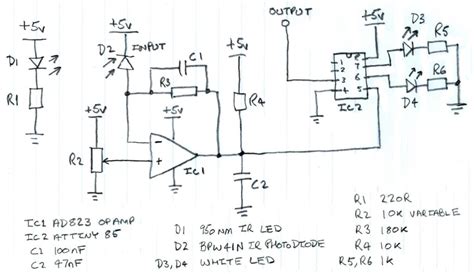 OUTPUT
+5v
+5v
+5v
+5v
D3
R5
D1
D2
INPUT
C1
R3
R1
R4
1
2
3
4
8
7
6
5
IC2
R6
D4
+5v
R2
-
+
IC1
C2
IC1 AD823 OP AMP
IC2 ATTINY 85
C1 100nF
C2 47nF
D1 950nm IR LED
D2 BPW41N IR PHOTODIODE
D3,D4 WHITE LED
R1 220R
R2 10K VARIABLE
R3 180K
R4 10K
R5,R6 1K